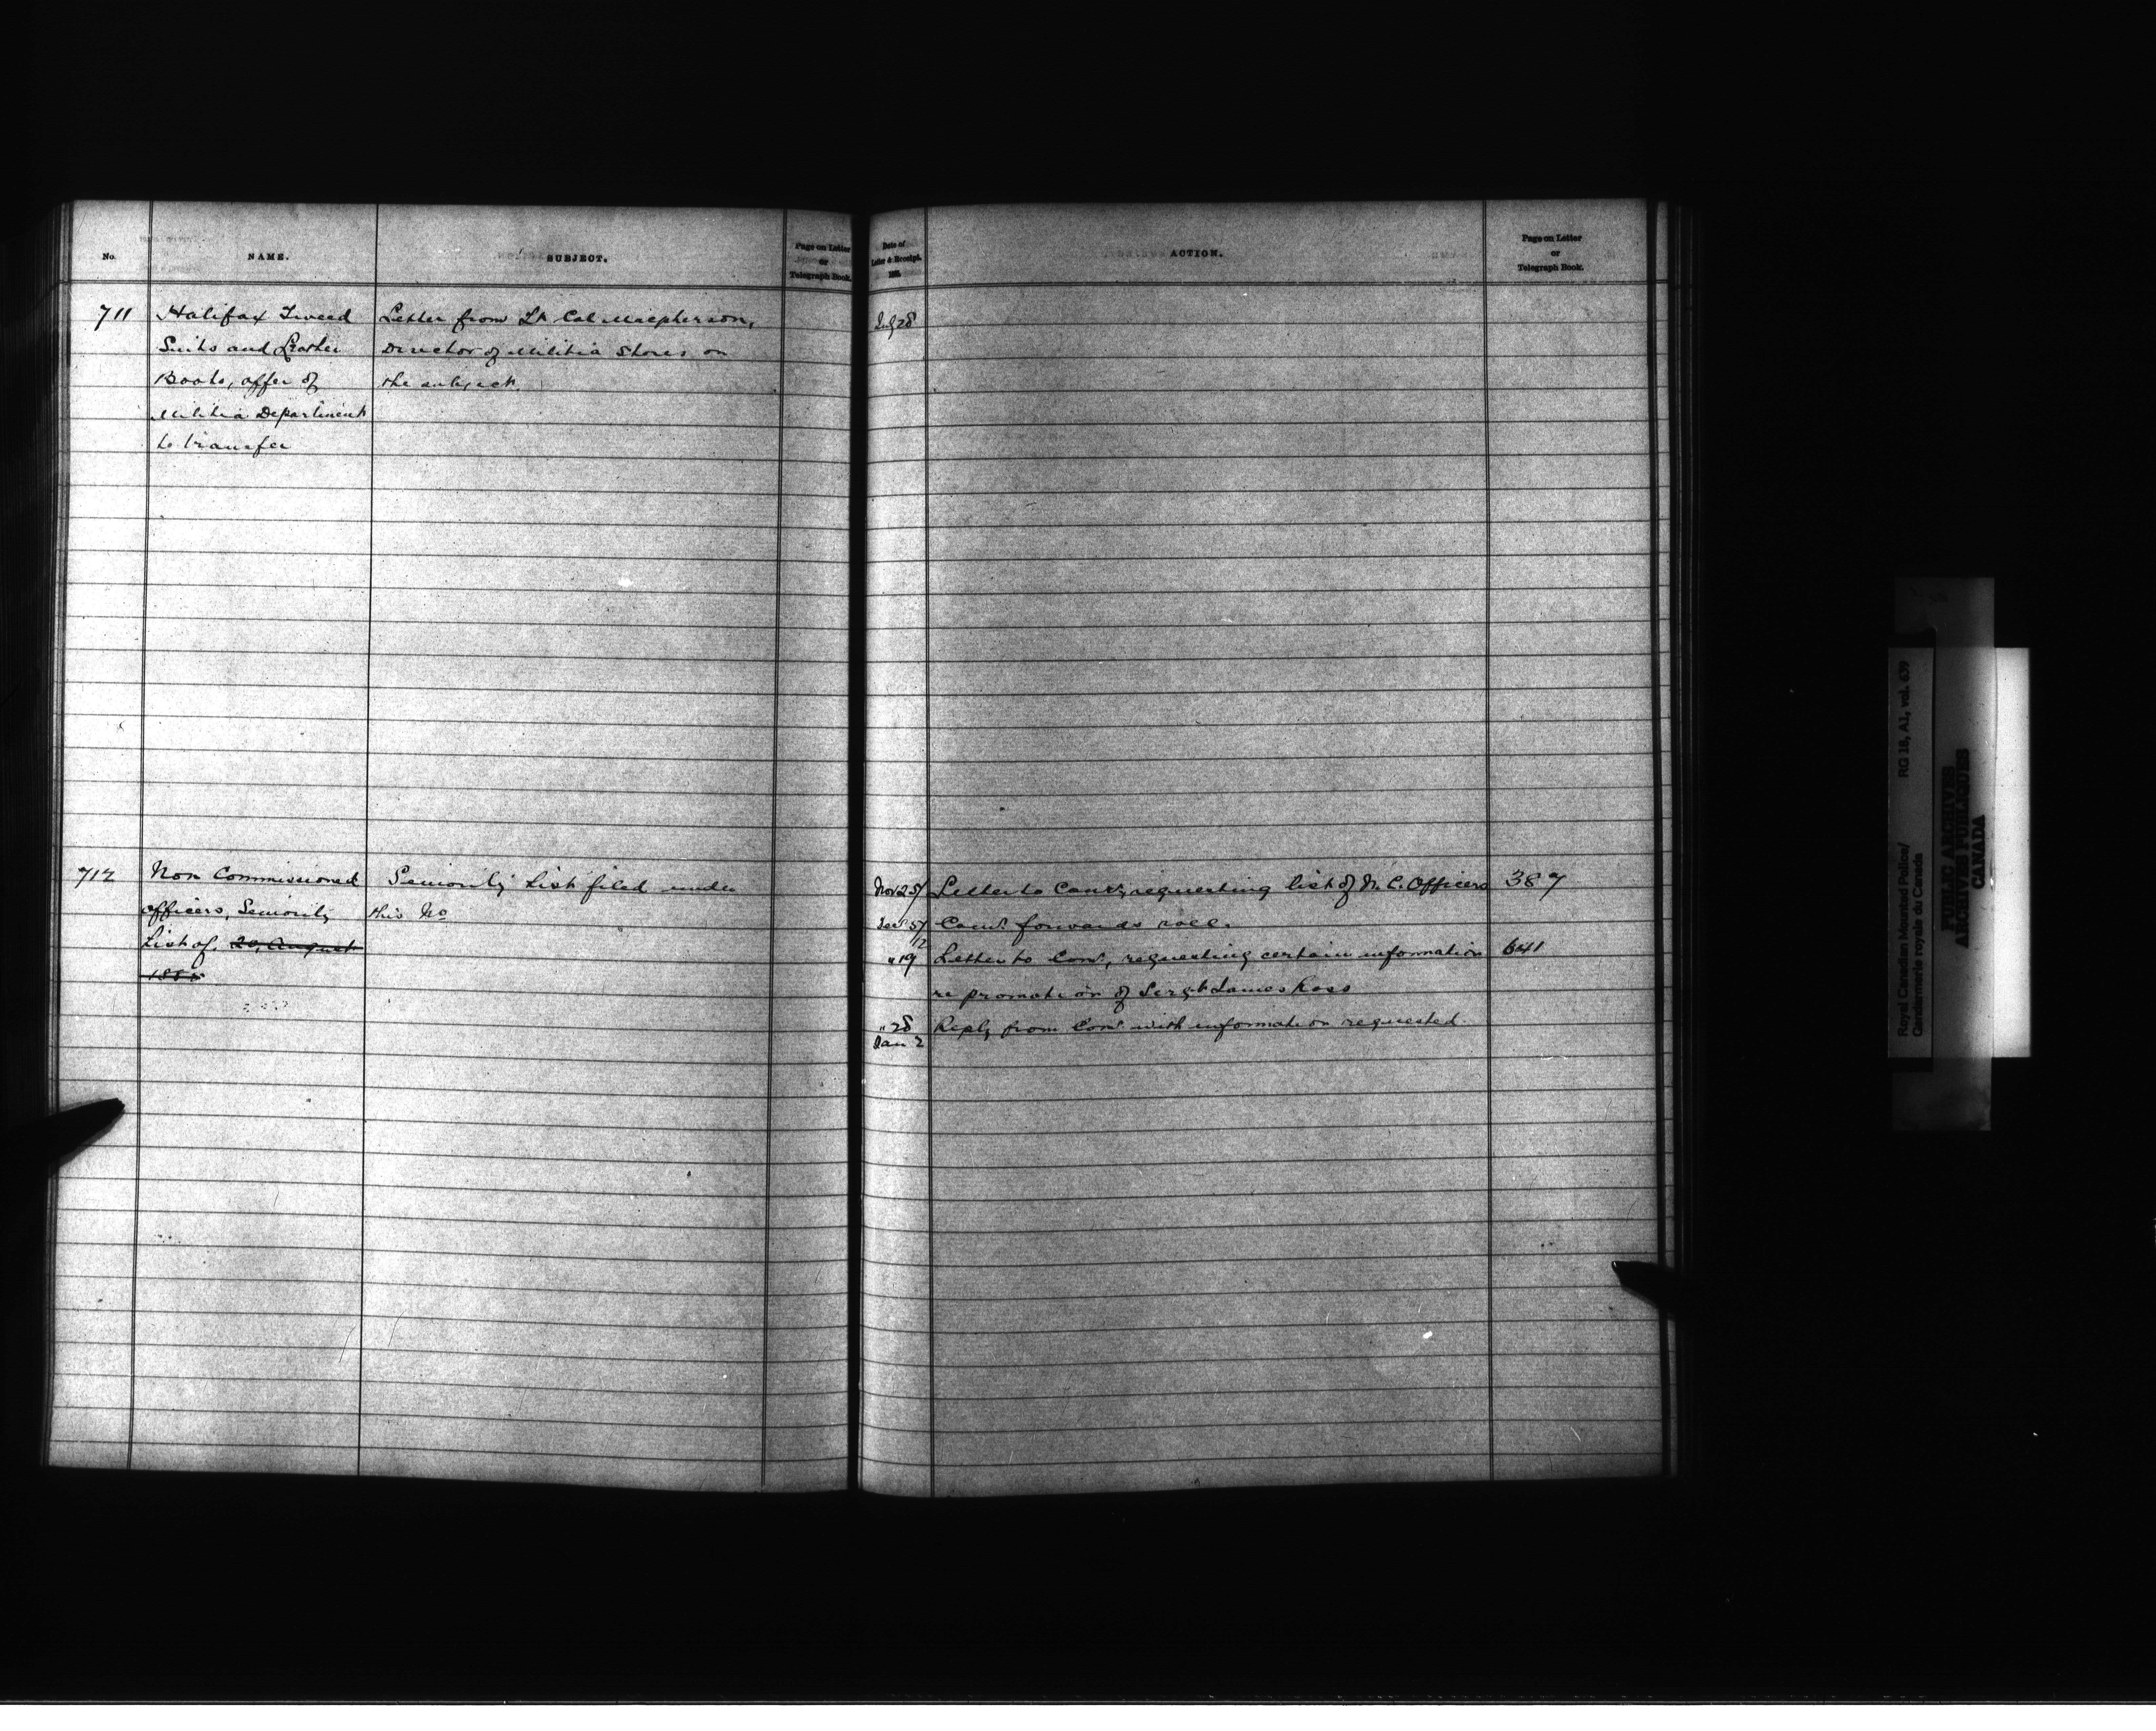 No.
NAME.
SUBJECT.
Page on Letter
or
Telegraph Book.
711
Halifax Tweed
Suits and Leather
Boots, offer of
Militia Department
to transfer
Letter from Lt Col Macpherson,
Director of Militia Stores on
the subject.
712
Non Commissioned
Officers, Seniority
List of, 20, August
1885
Seniority List filed under
this No
Date of
Letter & Receipt.
188
ACTION.
Page on Letter
or
Telegraph Book.
July 28
Nov 25/ Letter to Comr, requesting list of N. C. Officers 387
Dec 5/12 Comr. forwards roll.
" 19 Letter to Comr, requesting certain information 641
re promotion of Sergt James Ross
" 28 Reply from Comr with information requested.
Jan 2
Royal Canadian Mounted Police/
Gendarmerie royale du Canada
RG 18, A1, vol. 639
PUBLIC ARCHIVES
ARCHIVES PUBLIQUES
CANADA